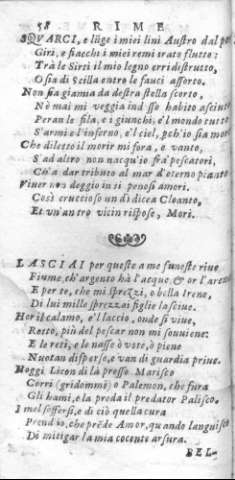 58 RIME
SQVARCI, e slige i miei lini Austro dal
Giri, e fiacchi i miei remi irato flutto:
Trà le Sirti il mio legno erri destrutto,
O sia di Scilla entro le fauci assorto.
Non sia giamia da destra stella scorto,
Nè mai mi veggia ind'sso habito asciutto
Peran le fila, e i giunchi; è'l mondo tutto
S'armi e l'inferno, e'l ciel, pch'io sia
Che diletto il morir mi fora, e vanto,
S'ad altro non nacqu'io frà pescatori,
Ch'à dar tributo al mar d'eterno pianto
Viuer non deggio in sì penosi amori.
Così cruccioso un dì dicea Cloanto,
Et un'antro vicin rispose, Mori.
LASCIAI per queste a me funeste riue
Fiume, ch'argento hà l'acque & or l'arene
E per te, che mi sprezzi, o bella Irene,
Di lui mille sprezzai figlie lasciue.
Hor il calamo, e'l laccio, onde si viue,
Retto, più del pescar non mi souuiene:
E le reti, e le nasse ò vote, ò piene
Nuotan disperse, e van di guardia priue.
Hoggi Licon di là presso Marisco
Corri (gridommi) o Palemon, che fura
Gli hami, e la preda il predator Palisco.
I mel soffersi, e di ciò quella cura
Prend'io, che prẽde Amor, quando languisco
Di mitigar la mia cocente arsura.
BEL-